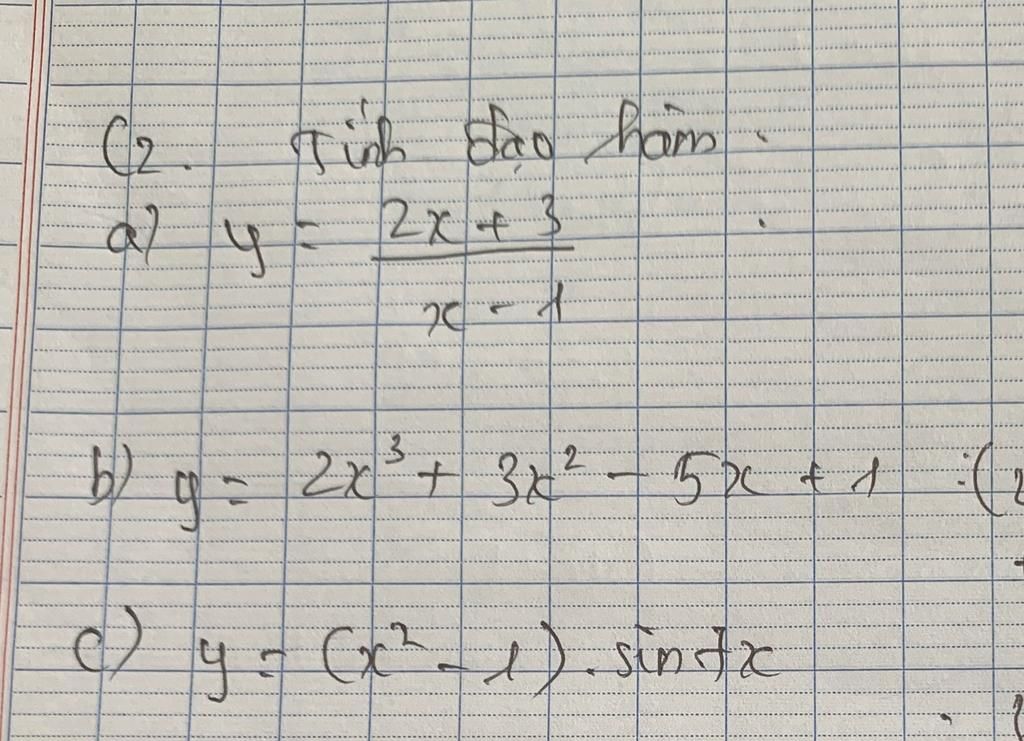 C2. Tính đạo hàm :
a) y = 2x + 3
x - 1
b) y = 2x³ + 3x² - 5x + 1 :(
c) y = (x² - 1) . sin 7x